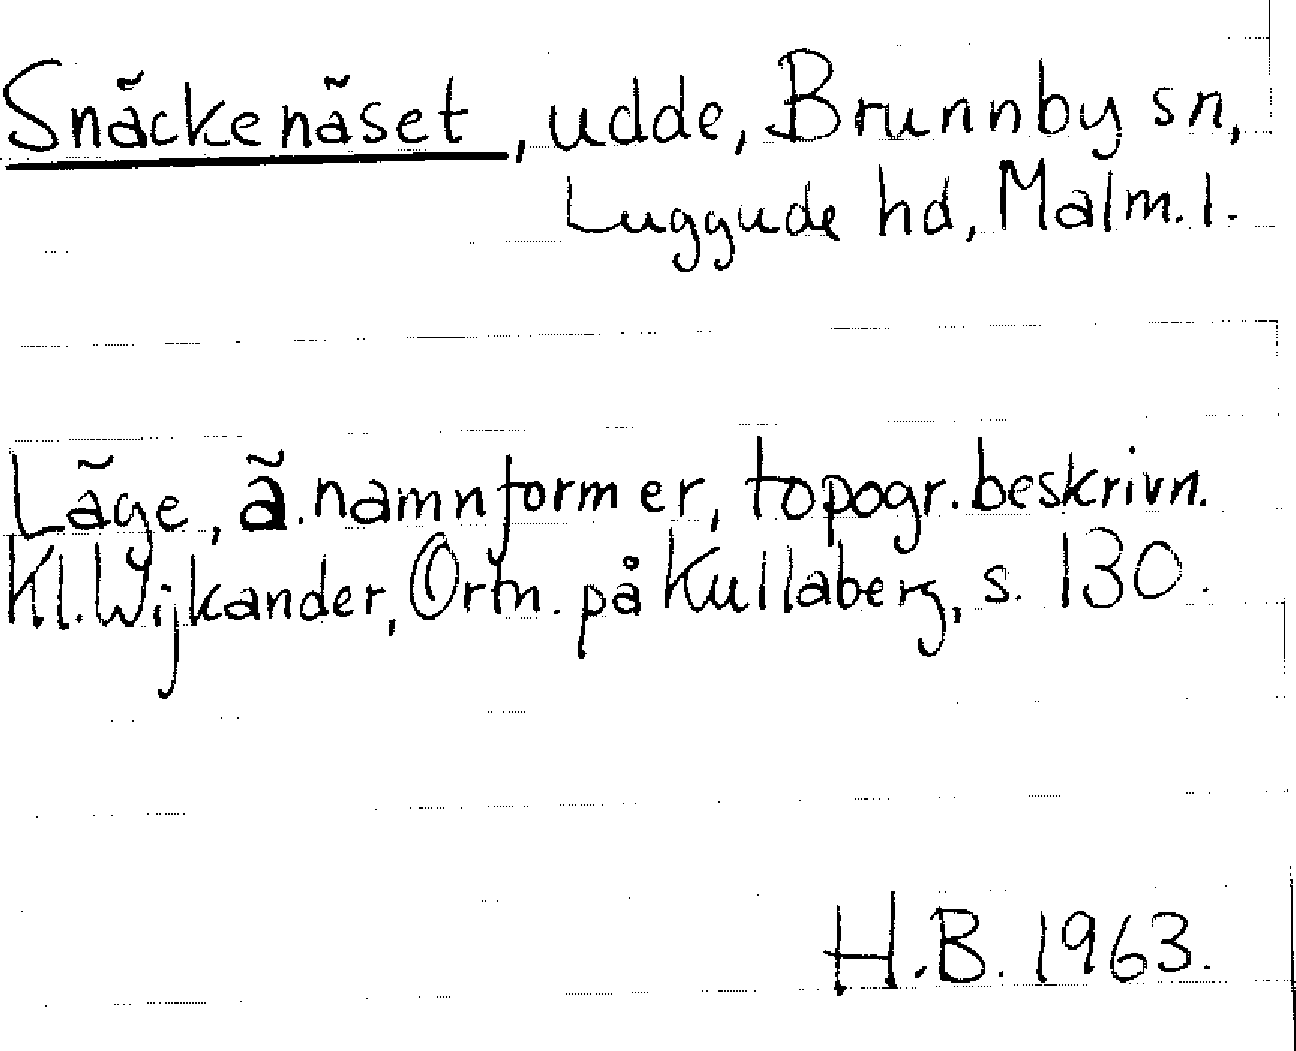 Snäckenäset, udde, Brunnby sn,
Luggude hd, Malm. l.
Läge, ä. namnformer, topogr. beskrivn.
Kl. Wijkander, Ortn. på Kullaberg, s. 130.
H.B. 1963.